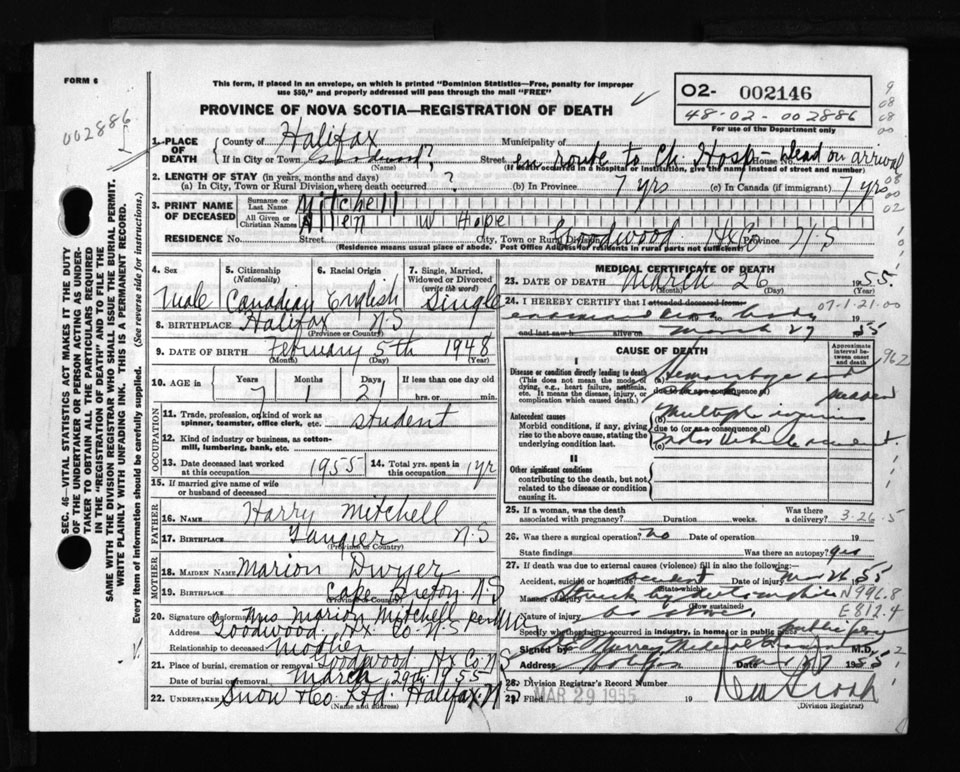 FORM 6
This form, if placed in an envelope, on which is printed "Dominion Statistics—Free, penalty for improper
use $50," and properly addressed will pass through the mail "FREE"
PROVINCE OF NOVA SCOTIA—REGISTRATION OF DEATH
O2- 002146
48-02-002886
For use of the Department only
002886
1. PLACE OF DEATH
County of Halifax
Municipality of
If in City or Town Goodwood?
(Name)
Street en route to Ch. Hosp - dead on arrival House No.
(If death occurred in a hospital or institution, give the name instead of street and number)
2. LENGTH OF STAY (in years, months and days)
(a) In City, Town or Rural Division, where death occurred ? (b) In Province 7 yrs (c) In Canada (if immigrant) 7 yrs
3. PRINT NAME OF DECEASED
Surname or Last Name Mitchell
All Given or Christian Names Allen W Hope
RESIDENCE No. Street City, Town or Rural Division Goodwood Hx Co Province N S
(Residence means usual place of abode. Post Office Address for residents in rural parts not sufficient)
4. Sex Male
5. Citizenship (Nationality) Canadian
6. Racial Origin English
7. Single, Married, Widowed or Divorced (write the word) Single
8. BIRTHPLACE Halifax N.S
(Province or Country)
9. DATE OF BIRTH February 5th 1948
(Month) (Day)
10. AGE in Years 7 Months 1 Days 21 If less than one day old hrs. or min.
OCCUPATION
11. Trade, profession, or kind of work as spinner, teamster, office clerk, etc. student
12. Kind of industry or business, as cotton-mill, lumbering, bank, etc.
13. Date deceased last worked at this occupation 1955
14. Total yrs. spent in this occupation 1 yr
15. If married give name of wife or husband of deceased
FATHER
16. NAME Harry Mitchell
17. BIRTHPLACE Tangier N.S
(Province or Country)
MOTHER
18. MAIDEN NAME Marion Dwyer
19. BIRTHPLACE Cape Breton N.S
(Province or Country)
20. Signature of informant Mrs Marion Mitchell per
Address Goodwood, Hx Co. N S
Relationship to deceased Mother
21. Place of burial, cremation or removal Goodwood Hx Co NS
Date of burial or removal March 29th 1955
22. UNDERTAKER Snow & Co. Ltd. Halifax NS
(Name and address)
MEDICAL CERTIFICATE OF DEATH
23. DATE OF DEATH March 26 1955
(Month) (Day)
24. I HEREBY CERTIFY that I attended deceased from 07-1-21-00
body 19
and last saw h alive on March 27 1955
CAUSE OF DEATH
Approximate interval between onset and death
I
Disease or condition directly leading to death
(This does not mean the mode of dying, e.g., heart failure, asthenia, etc. It means the disease, injury, or complication which caused death.)
(a) Hemorrhage and
Antecedent causes
Morbid conditions, if any, giving rise to the above cause, stating the underlying condition last.
(b) Multiple injuries
due to (or as a consequence of)
(c) Motor vehicle accident.
II
Other significant conditions
contributing to the death, but not related to the disease or condition causing it.
25. If a woman, was the death associated with pregnancy? Duration weeks. Was there a delivery? 3-26-5
26. Was there a surgical operation? no Date of operation 19
State findings Was there an autopsy? yes
27. If death was due to external causes (violence) fill in also the following:
Accident, suicide or homicide? accident Date of injury Mar 26 1955
(State which)
Manner of injury Struck by automobile N996.8
(How sustained)
Nature of injury as above. E812.4
Specify whether injury occurred in industry, in home, or in public place public place
Signed by M.D.
Address Halifax Date 1955
28. Division Registrar's Record Number
29. Filed MAR 29 1955 19
(Division Registrar)
SEC. 46 VITAL STATISTICS ACT MAKES IT THE DUTY
OF THE UNDERTAKER OR PERSON ACTING AS UNDER-
TAKER TO OBTAIN ALL THE PARTICULARS REQUIRED
IN THE "REGISTRATION OF DEATH" AND TO FILE THE
SAME WITH THE DIVISION REGISTRAR WHO SHALL ISSUE THE BURIAL PERMIT.
WRITE PLAINLY WITH UNFADING INK. THIS IS A PERMANENT RECORD.
Every item of information should be carefully supplied. (See reverse side for instructions.)